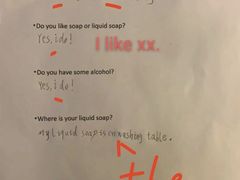 *Do you like soap or liquid soap?
Yes, i do!
I like xx.
*Do you have some alcohol?
Yes, i do!
*Where is your liquid soap?
my liquid soap is on washing table.
the